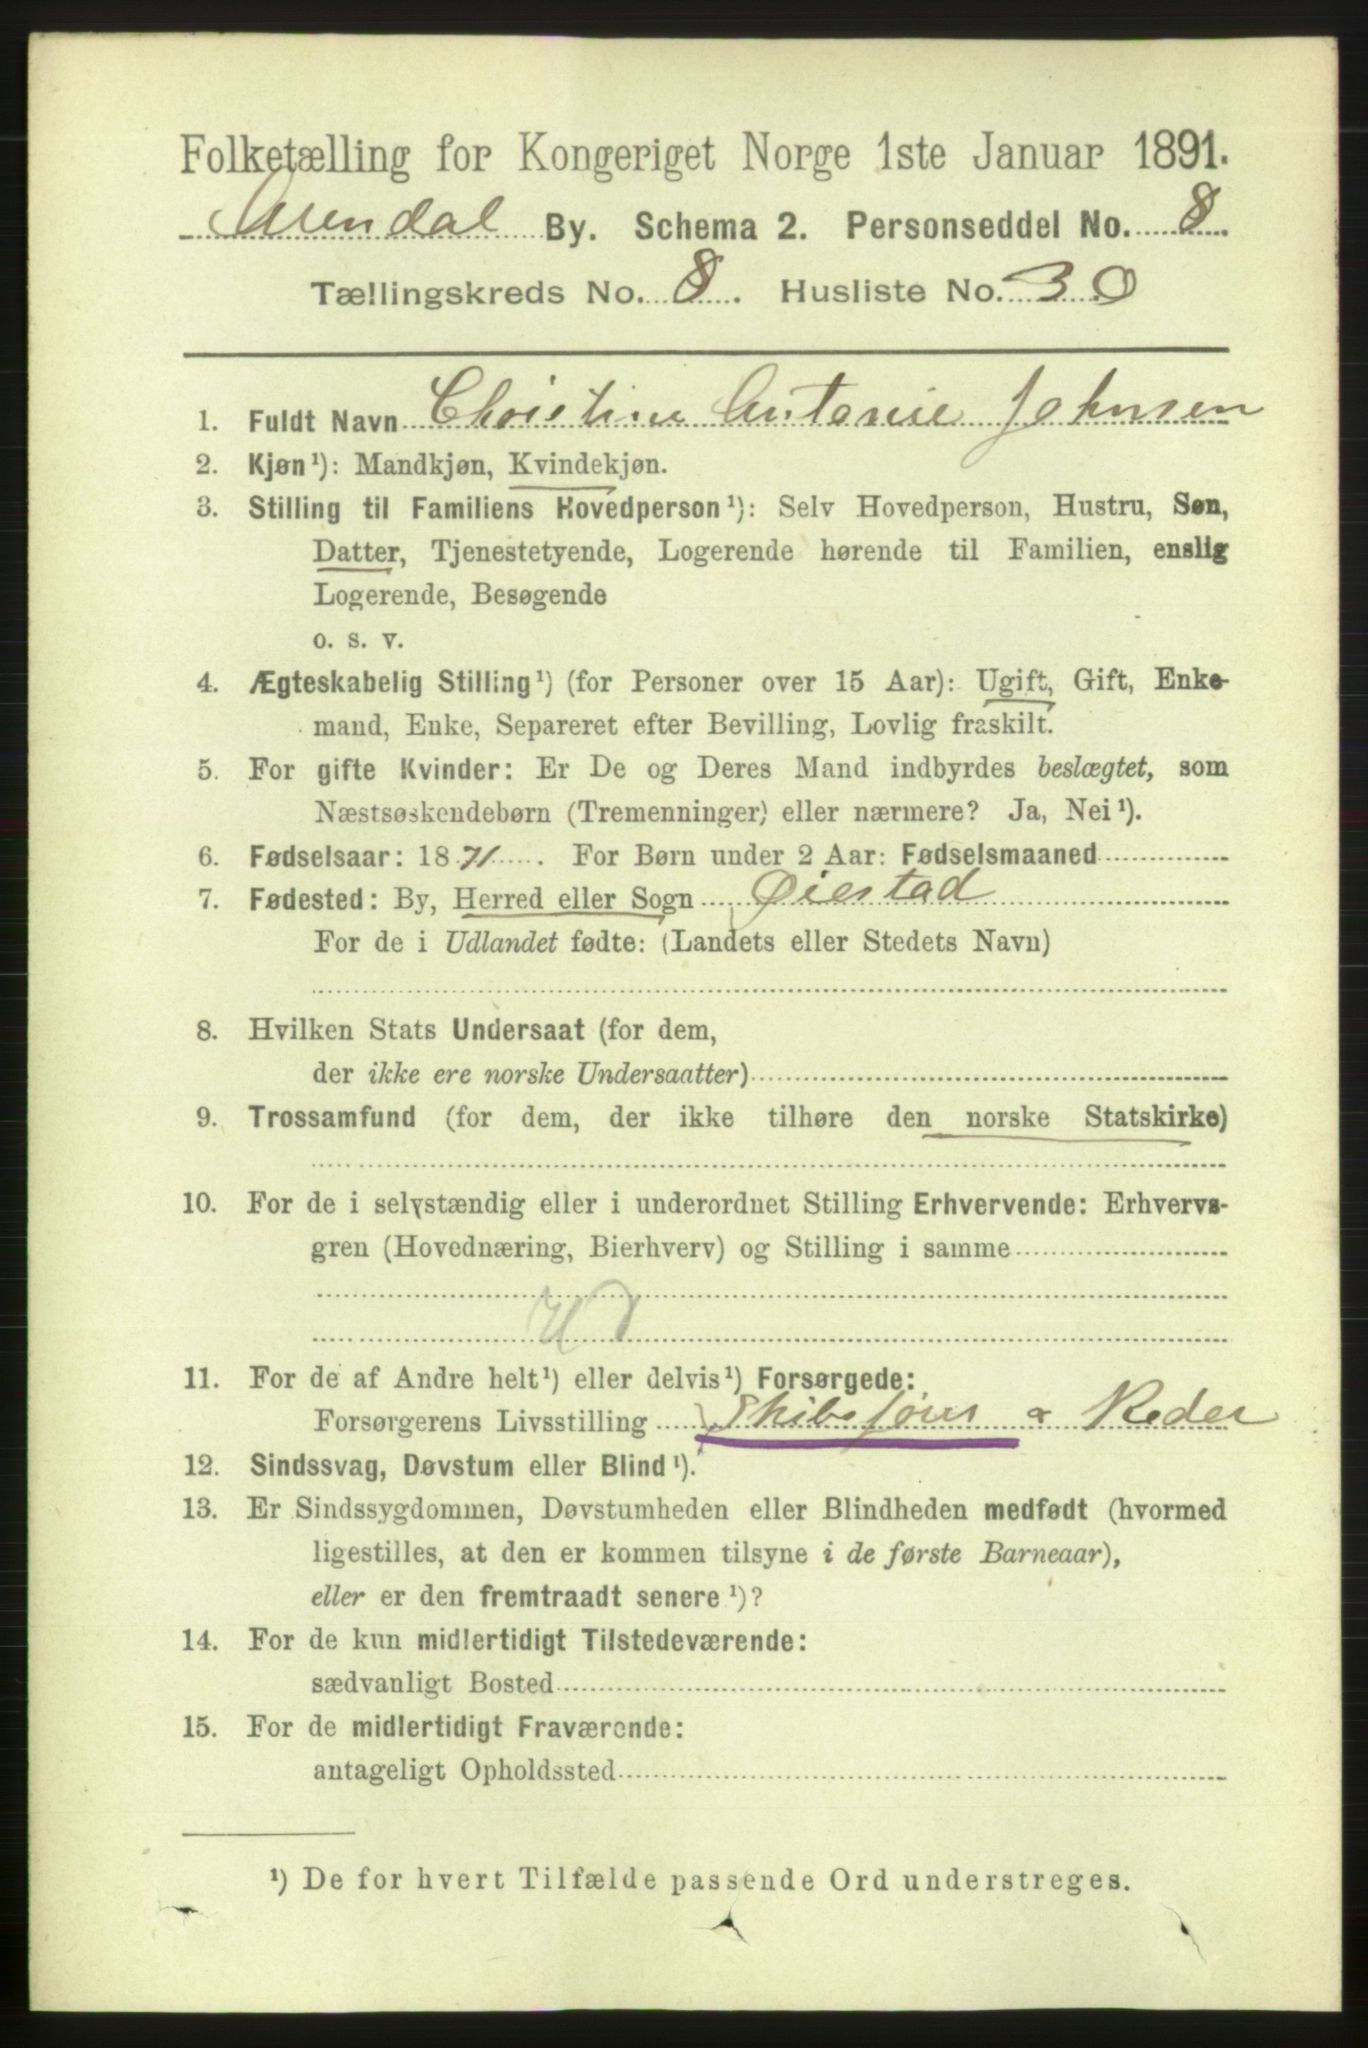 Folketælling for Kongeriget Norge 1ste Januar 1891.
Arendal By. Schema 2. Personseddel No. 8
Tællingskreds No. 8. Husliste No. 30
1. Fuldt Navn Christine Antonie Johnsen
2. Kjøn¹): Mandkjøn, Kvindekjøn.
3. Stilling til Familiens Hovedperson¹): Selv Hovedperson, Hustru, Søn,
Datter, Tjenestetyende, Logerende hørende til Familien, enslig
Logerende, Besøgende
o. s. v.
4. Ægteskabelig Stilling¹) (for Personer over 15 Aar): Ugift, Gift, Enke-
mand, Enke, Separeret efter Bevilling, Lovlig fraskilt.
5. For gifte Kvinder: Er De og Deres Mand indbyrdes beslægtet, som
Næstsøskendebørn (Tremenninger) eller nærmere? Ja, Nei¹).
6. Fødselsaar: 1871. For Børn under 2 Aar: Fødselsmaaned
7. Fødested: By, Herred eller Sogn Øiestad
For de i Udlandet fødte: (Landets eller Stedets Navn)
8. Hvilken Stats Undersaat (for dem,
der ikke ere norske Undersaatter)
9. Trossamfund (for dem, der ikke tilhøre den norske Statskirke)
10. For de i selvstændig eller i underordnet Stilling Erhvervende: Erhvervs-
gren (Hovednæring, Bierhverv) og Stilling i samme
11. For de af Andre helt¹) eller delvis¹) Forsørgede:
Forsørgerens Livsstilling Skibsfører & Reder
12. Sindssvag, Døvstum eller Blind¹).
13. Er Sindssygdommen, Døvstumheden eller Blindheden medfødt (hvormed
ligestilles, at den er kommen tilsyne i de første Barneaar),
eller er den fremtraadt senere¹)?
14. For de kun midlertidigt Tilstedeværende:
sædvanligt Bosted
15. For de midlertidigt Fraværende:
antageligt Opholdssted
¹) De for hvert Tilfælde passende Ord understreges.